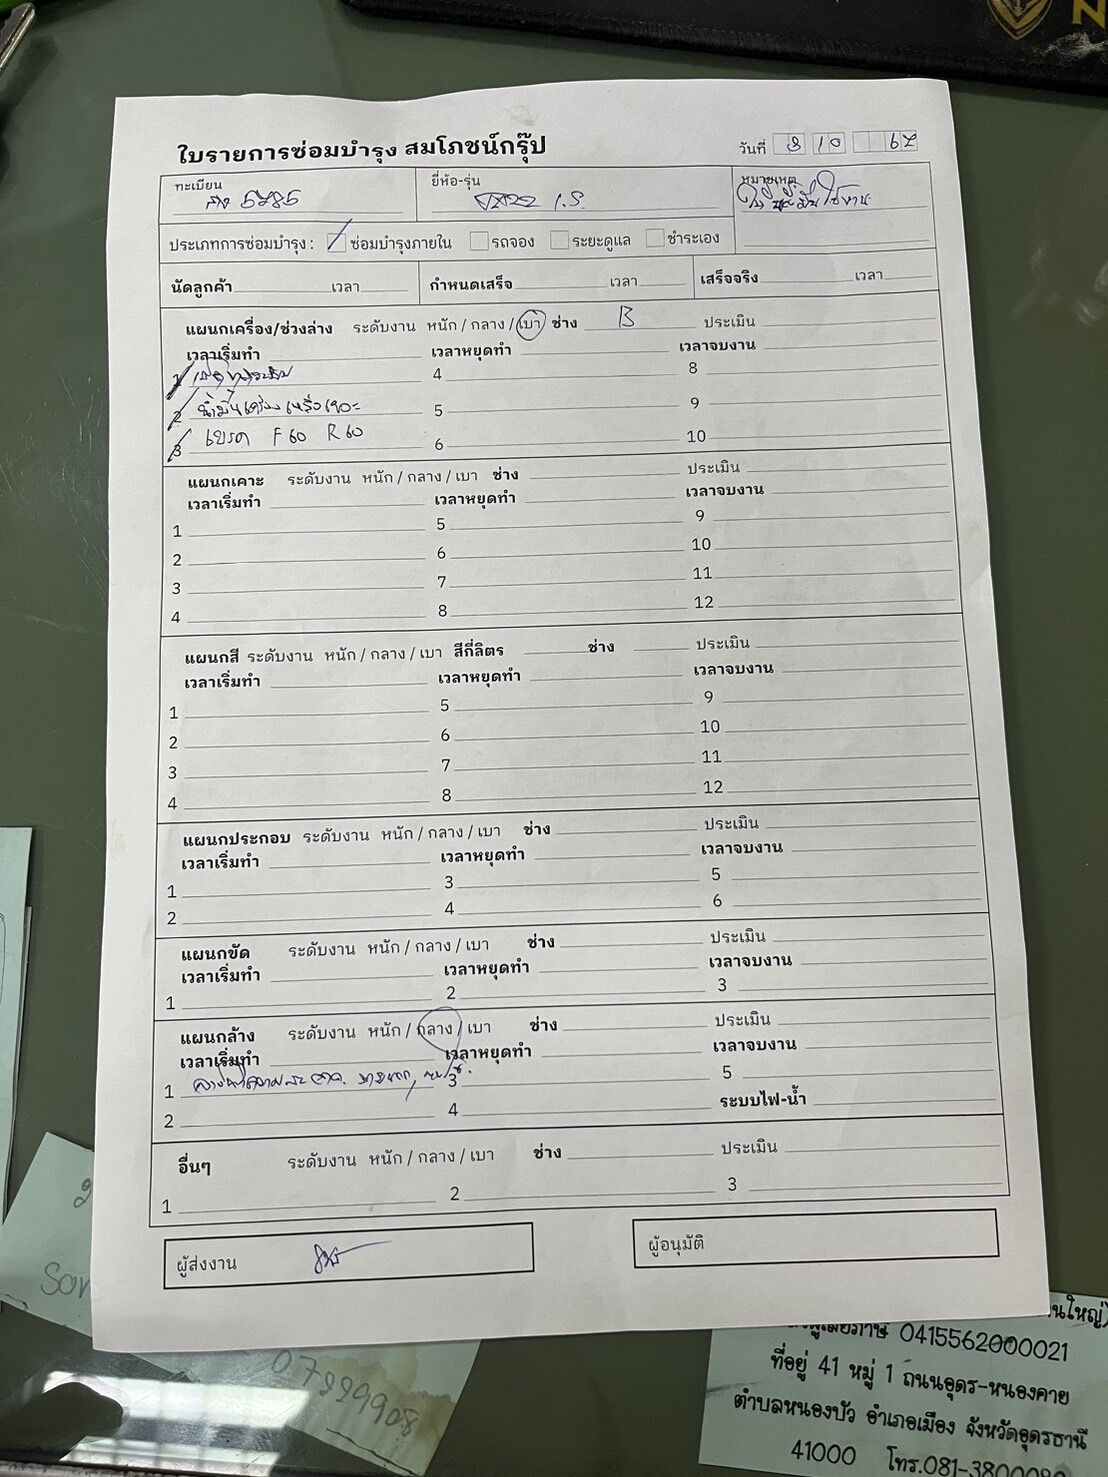 ใบรายการซ่อมบำรุง สมโภชน์กรุ๊ป
วันที่ 3 10 67
ทะเบียน 5785
ยี่ห้อ-รุ่น
หมายเหตุ
ประเภทการซ่อมบำรุง : ซ่อมบำรุงภายใน รถจอง ระยะดูแล ชำระเอง
นัดลูกค้า เวลา กำหนดเสร็จ เวลา เสร็จจริง เวลา
แผนกเครื่อง/ช่วงล่าง ระดับงาน หนัก / กลาง / เบา ช่าง B ประเมิน
เวลาเริ่มทำ เวลาหยุดทำ เวลาจบงาน
1 4 8
2 น้ำมันเครื่อง 5 9
3 เบรค F60 R60 6 10
แผนกเคาะ ระดับงาน หนัก / กลาง / เบา ช่าง ประเมิน
เวลาเริ่มทำ เวลาหยุดทำ เวลาจบงาน
1 5 9
2 6 10
3 7 11
4 8 12
แผนกสี ระดับงาน หนัก / กลาง / เบา สีกี่ลิตร ช่าง ประเมิน
เวลาเริ่มทำ เวลาหยุดทำ เวลาจบงาน
1 5 9
2 6 10
3 7 11
4 8 12
แผนกประกอบ ระดับงาน หนัก / กลาง / เบา ช่าง ประเมิน
เวลาเริ่มทำ เวลาหยุดทำ เวลาจบงาน
1 3 5
2 4 6
แผนกขัด ระดับงาน หนัก / กลาง / เบา ช่าง ประเมิน
เวลาเริ่มทำ เวลาหยุดทำ เวลาจบงาน
1 2 3
แผนกล้าง ระดับงาน หนัก / กลาง / เบา ช่าง ประเมิน
เวลาเริ่มทำ เวลาหยุดทำ เวลาจบงาน
1 3 5
2 4 ระบบไฟ-น้ำ
อื่นๆ ระดับงาน หนัก / กลาง / เบา ช่าง ประเมิน
1 2 3
ผู้ส่งงาน
ผู้อนุมัติ
0415562000021
ที่อยู่ 41 หมู่ 1 ถนนอุดร-หนองคาย
ตำบลหนองบัว อำเภอเมือง จังหวัดอุดรธานี
41000 โทร.081-38000